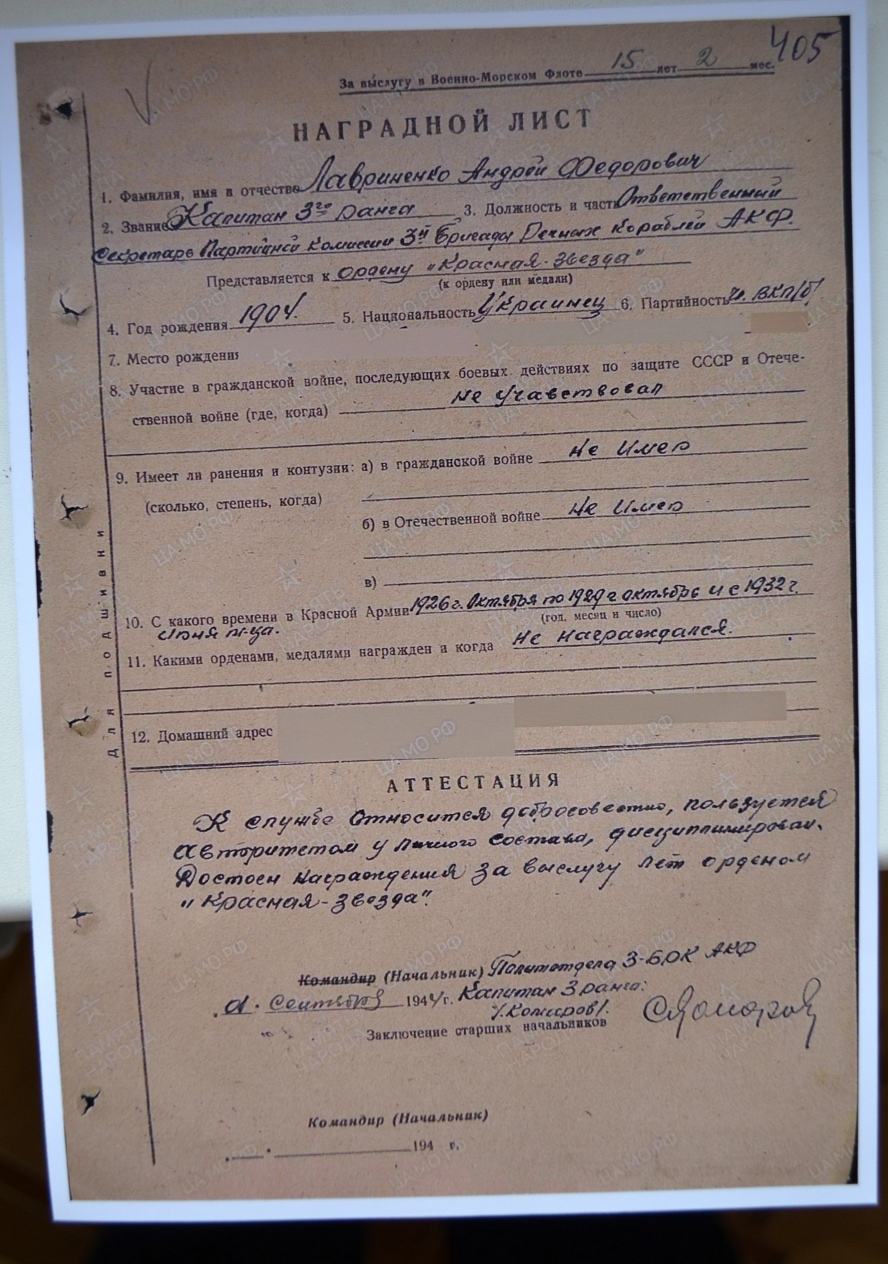 405
За выслугу в Военно-Морском Флоте 15 лет 2 мес.
НАГРАДНОЙ ЛИСТ
1. Фамилия, имя и отчество Лавриненко Андрей Федорович
2. Звание Капитан 3го ранга 3. Должность и часть Ответственный
Секретарь Партийной Комиссии 3й Бригады Речных Кораблей АКФ.
Представляется к ордену "Красная-звезда"
(к ордену или медали)
4. Год рождения 1904. 5. Национальность Украинец 6. Партийность Чл. ВКП/б/
7. Место рождения
8. Участие в гражданской войне, последующих боевых действиях по защите СССР и Отече-
ственной войне (где, когда) Не Учавствовал
9. Имеет ли ранения и контузии: а) в гражданской войне Не Имел
(сколько, степень, когда)
б) в Отечественной войне Не Имел
в)
10. С какого времени в Красной Армии 1926 г. Октября по 1929 г октябрь и с 1932 г.
(год, месяц и число)
Июня м-ца.
11. Какими орденами, медалями награжден и когда Не Награждался.
12. Домашний адрес
Для подшивки
АТТЕСТАЦИЯ
К службе Относится добросовестно, пользуется
Авторитетом у Личного состава, дисциплинирован.
Достоен Награждения за выслугу лет орденом
"Красная-звезда".
Командир (Начальник) Политотдела 3-БРК АКФ
сентября 1944 г. Капитан 3 ранга:
/Комаров/.
Заключение старших начальников
Командир (Начальник)
194 г.
ЦАМО.РФ